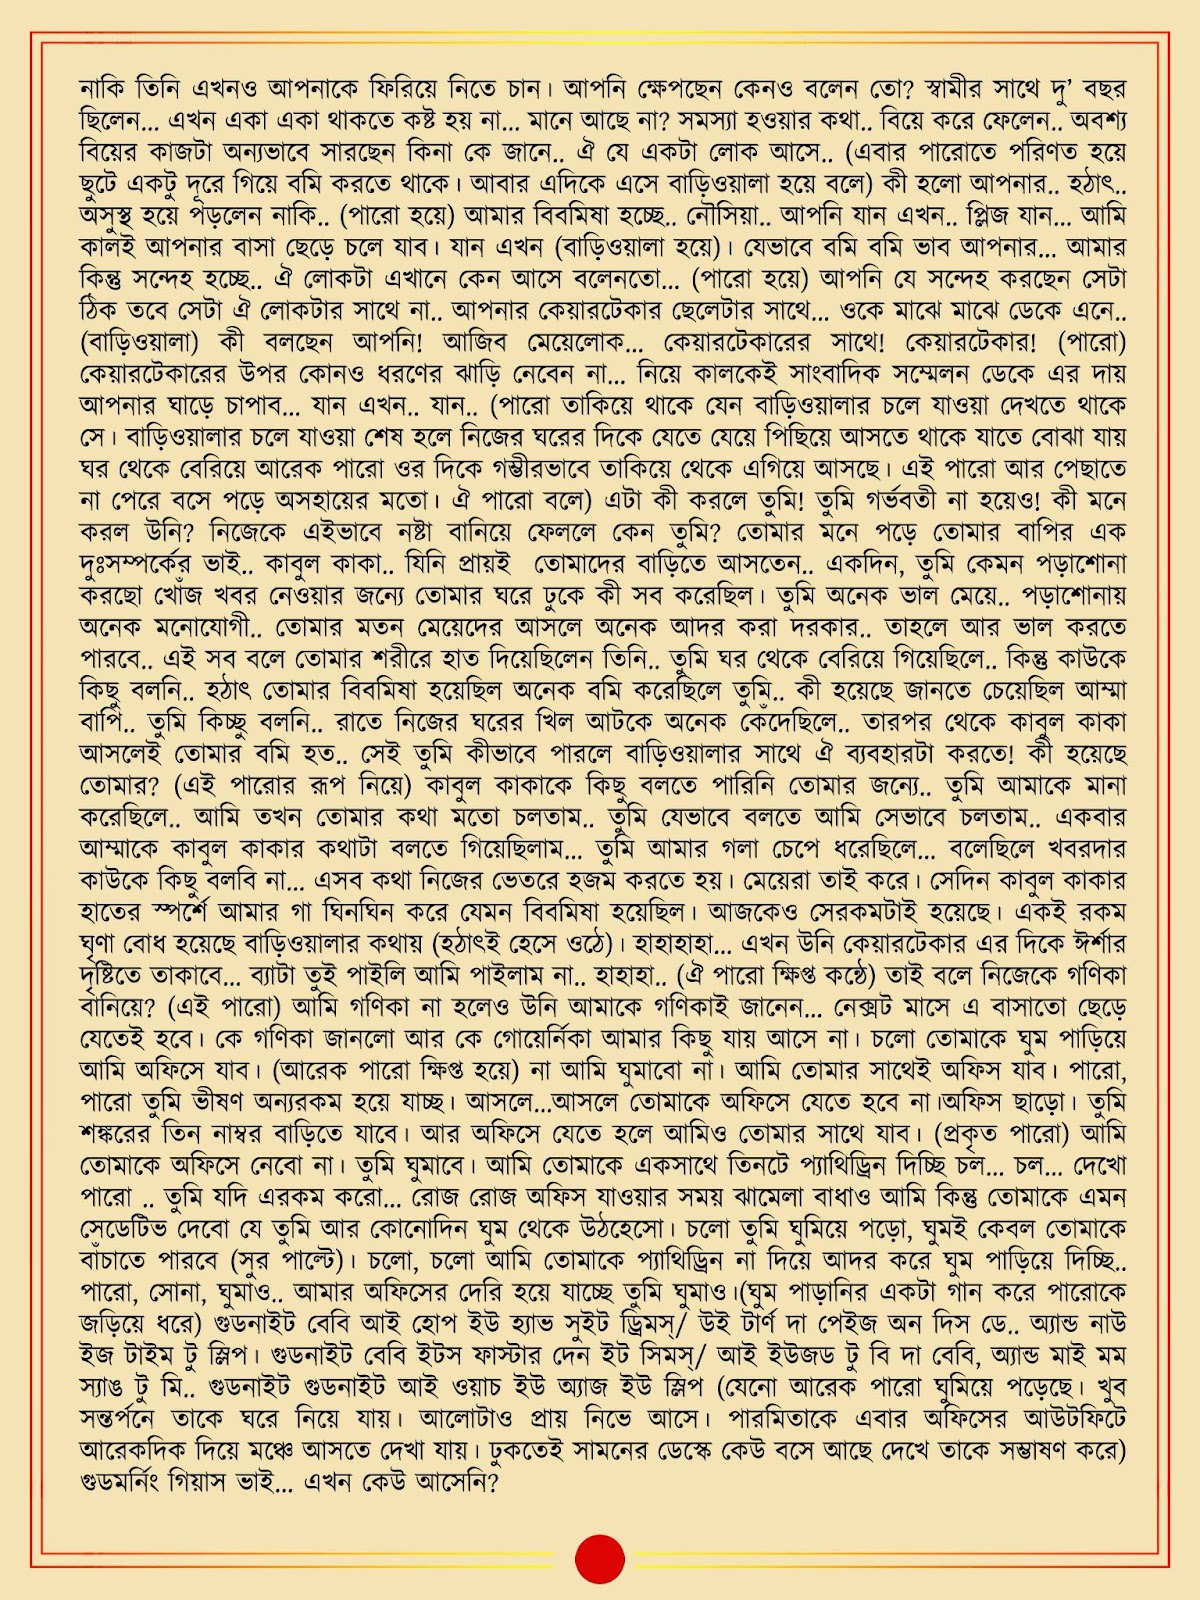 নাকি তিনি এখনও আপনাকে ফিরিয়ে নিতে চান। আপনি ক্ষেপছেন কেনও বলেন তো? স্বামীর সাথে দু’ বছর
ছিলেন... এখন একা একা থাকতে কষ্ট হয় না... মানে আছে না? সমস্যা হওয়ার কথা.. বিয়ে করে ফেলেন.. অবশ্য
বিয়ের কাজটা অন্যভাবে সারছেন কিনা কে জানে.. ঐ যে একটা লোক আসে.. (এবার পারোতে পরিণত হয়ে
ছুটে একটু দূরে গিয়ে বমি করতে থাকে। আবার এদিকে এসে বাড়িওয়ালা হয়ে বলে) কী হলো আপনার.. হঠাৎ..
অসুস্থ হয়ে পড়লেন নাকি.. (পারো হয়ে) আমার বিবমিষা হচ্ছে.. নৌসিয়া.. আপনি যান এখন.. প্লিজ যান... আমি
কালই আপনার বাসা ছেড়ে চলে যাব। যান এখন (বাড়িওয়ালা হয়ে)। যেভাবে বমি বমি ভাব আপনার... আমার
কিন্তু সন্দেহ হচ্ছে.. ঐ লোকটা এখানে কেন আসে বলেনতো... (পারো হয়ে) আপনি যে সন্দেহ করছেন সেটা
ঠিক তবে সেটা ঐ লোকটার সাথে না.. আপনার কেয়ারটেকার ছেলেটার সাথে... ওকে মাঝে মাঝে ডেকে এনে..
(বাড়িওয়ালা) কী বলছেন আপনি! আজিব মেয়েলোক... কেয়ারটেকারের সাথে! কেয়ারটেকার! (পারো)
কেয়ারটেকারের উপর কোনও ধরণের ঝাড়ি নেবেন না... নিয়ে কালকেই সাংবাদিক সম্মেলন ডেকে এর দায়
আপনার ঘাড়ে চাপাব... যান এখন.. যান.. (পারো তাকিয়ে থাকে যেন বাড়িওয়ালার চলে যাওয়া দেখতে থাকে
সে। বাড়িওয়ালার চলে যাওয়া শেষ হলে নিজের ঘরের দিকে যেতে যেয়ে পিছিয়ে আসতে থাকে যাতে বোঝা যায়
ঘর থেকে বেরিয়ে আরেক পারো ওর দিকে গম্ভীরভাবে তাকিয়ে থেকে এগিয়ে আসছে। এই পারো আর পেছাতে
না পেরে বসে পড়ে অসহায়ের মতো। ঐ পারো বলে) এটা কী করলে তুমি! তুমি গর্ভবতী না হয়েও! কী মনে
করল উনি? নিজেকে এইভাবে নষ্টা বানিয়ে ফেললে কেন তুমি? তোমার মনে পড়ে তোমার বাপির এক
দুঃসম্পর্কের ভাই.. কাবুল কাকা.. যিনি প্রায়ই তোমাদের বাড়িতে আসতেন.. একদিন, তুমি কেমন পড়াশোনা
করছো খোঁজ খবর নেওয়ার জন্যে তোমার ঘরে ঢুকে কী সব করেছিল। তুমি অনেক ভাল মেয়ে.. পড়াশোনায়
অনেক মনোযোগী.. তোমার মতন মেয়েদের আসলে অনেক আদর করা দরকার.. তাহলে আর ভাল করতে
পারবে.. এই সব বলে তোমার শরীরে হাত দিয়েছিলেন তিনি.. তুমি ঘর থেকে বেরিয়ে গিয়েছিলে.. কিন্তু কাউকে
কিছু বলনি.. হঠাৎ তোমার বিবমিষা হয়েছিল অনেক বমি করেছিলে তুমি.. কী হয়েছে জানতে চেয়েছিল আম্মা
বাপি.. তুমি কিচ্ছু বলনি.. রাতে নিজের ঘরের খিল আটকে অনেক কেঁদেছিলে.. তারপর থেকে কাবুল কাকা
আসলেই তোমার বমি হত.. সেই তুমি কীভাবে পারলে বাড়িওয়ালার সাথে ঐ ব্যবহারটা করতে! কী হয়েছে
তোমার? (এই পারোর রূপ নিয়ে) কাবুল কাকাকে কিছু বলতে পারিনি তোমার জন্যে.. তুমি আমাকে মানা
করেছিলে.. আমি তখন তোমার কথা মতো চলতাম.. তুমি যেভাবে বলতে আমি সেভাবে চলতাম.. একবার
আম্মাকে কাবুল কাকার কথাটা বলতে গিয়েছিলাম... তুমি আমার গলা চেপে ধরেছিলে... বলেছিলে খবরদার
কাউকে কিছু বলবি না... এসব কথা নিজের ভেতরে হজম করতে হয়। মেয়েরা তাই করে। সেদিন কাবুল কাকার
হাতের স্পর্শে আমার গা ঘিনঘিন করে যেমন বিবমিষা হয়েছিল। আজকেও সেরকমটাই হয়েছে। একই রকম
ঘৃণা বোধ হয়েছে বাড়িওয়ালার কথায় (হঠাৎই হেসে ওঠে)। হাহাহাহা... এখন উনি কেয়ারটেকার এর দিকে ঈর্শার
দৃষ্টিতে তাকাবে... ব্যাটা তুই পাইলি আমি পাইলাম না.. হাহাহা.. (ঐ পারো ক্ষিপ্ত কন্ঠে) তাই বলে নিজেকে গণিকা
বানিয়ে? (এই পারো) আমি গণিকা না হলেও উনি আমাকে গণিকাই জানেন... নেক্সট মাসে এ বাসাতো ছেড়ে
যেতেই হবে। কে গণিকা জানলো আর কে গোয়ের্নিকা আমার কিছু যায় আসে না। চলো তোমাকে ঘুম পাড়িয়ে
আমি অফিসে যাব। (আরেক পারো ক্ষিপ্ত হয়ে) না আমি ঘুমাবো না। আমি তোমার সাথেই অফিস যাব। পারো,
পারো তুমি ভীষণ অন্যরকম হয়ে যাচ্ছ। আসলে...আসলে তোমাকে অফিসে যেতে হবে না।অফিস ছাড়ো। তুমি
শঙ্করের তিন নাম্বর বাড়িতে যাবে। আর অফিসে যেতে হলে আমিও তোমার সাথে যাব। (প্রকৃত পারো) আমি
তোমাকে অফিসে নেবো না। তুমি ঘুমাবে। আমি তোমাকে একসাথে তিনটে প্যাথিড্রিন দিচ্ছি চল... চল... দেখো
পারো .. তুমি যদি এরকম করো... রোজ রোজ অফিস যাওয়ার সময় ঝামেলা বাধাও আমি কিন্তু তোমাকে এমন
সেডেটিভ দেবো যে তুমি আর কোনোদিন ঘুম থেকে উঠহেসো। চলো তুমি ঘুমিয়ে পড়ো, ঘুমই কেবল তোমাকে
বাঁচাতে পারবে (সুর পাল্টে)। চলো, চলো আমি তোমাকে প্যাথিড্রিন না দিয়ে আদর করে ঘুম পাড়িয়ে দিচ্ছি..
পারো, সোনা, ঘুমাও.. আমার অফিসের দেরি হয়ে যাচ্ছে তুমি ঘুমাও।(ঘুম পাড়ানির একটা গান করে পারোকে
জড়িয়ে ধরে) গুডনাইট বেবি আই হোপ ইউ হ্যাভ সুইট ড্রিমস্/ উই টার্ণ দা পেইজ অন দিস ডে.. অ্যান্ড নাউ
ইজ টাইম টু স্লিপ। গুডনাইট বেবি ইটস ফাস্টার দেন ইট সিমস্/ আই ইউজড টু বি দা বেবি, অ্যান্ড মাই মম
স্যাঙ টু মি.. গুডনাইট গুডনাইট আই ওয়াচ ইউ অ্যাজ ইউ স্লিপ (যেনো আরেক পারো ঘুমিয়ে পড়েছে। খুব
সন্তর্পনে তাকে ঘরে নিয়ে যায়। আলোটাও প্রায় নিভে আসে। পারমিতাকে এবার অফিসের আউটফিটে
আরেকদিক দিয়ে মঞ্চে আসতে দেখা যায়। ঢুকতেই সামনের ডেস্কে কেউ বসে আছে দেখে তাকে সম্ভাষণ করে)
গুডমর্নিং গিয়াস ভাই... এখন কেউ আসেনি?